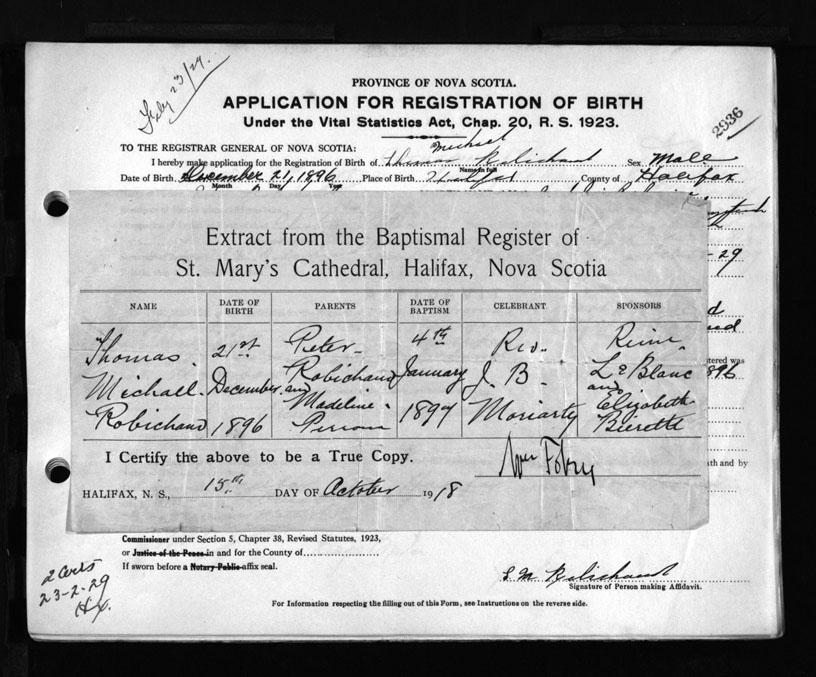 Feby 23/29.
PROVINCE OF NOVA SCOTIA.
APPLICATION FOR REGISTRATION OF BIRTH
Under the Vital Statistics Act, Chap. 20, R. S. 1923.
2936
TO THE REGISTRAR GENERAL OF NOVA SCOTIA:
Michael
I hereby make application for the Registration of Birth of Thomas Robichaud Sex Male
Name in full
Date of Birth December 21, 1896 Place of Birth Halifax County of Halifax
Month Day Year
29
Extract from the Baptismal Register of
St. Mary's Cathedral, Halifax, Nova Scotia
NAME DATE OF BIRTH PARENTS DATE OF BAPTISM CELEBRANT SPONSORS
Thomas 21st Peter 4th Rev.
Michael December Robichaud and January J. B. LeBlanc and
Robichaud 1896 Madeline 1897 Moriarty Elizabeth
tered was
896
I Certify the above to be a True Copy.
Wm Foley
th and by
HALIFAX, N. S., 15th DAY OF October 1918
Commissioner under Section 5, Chapter 38, Revised Statutes, 1923,
or Justice of the Peace in and for the County of
If sworn before a Notary Public affix seal.
2 Certs
23-2-29
Hx.
Robichaud
Signature of Person making Affidavit.
For Information respecting the filling out of this Form, see Instructions on the reverse side.